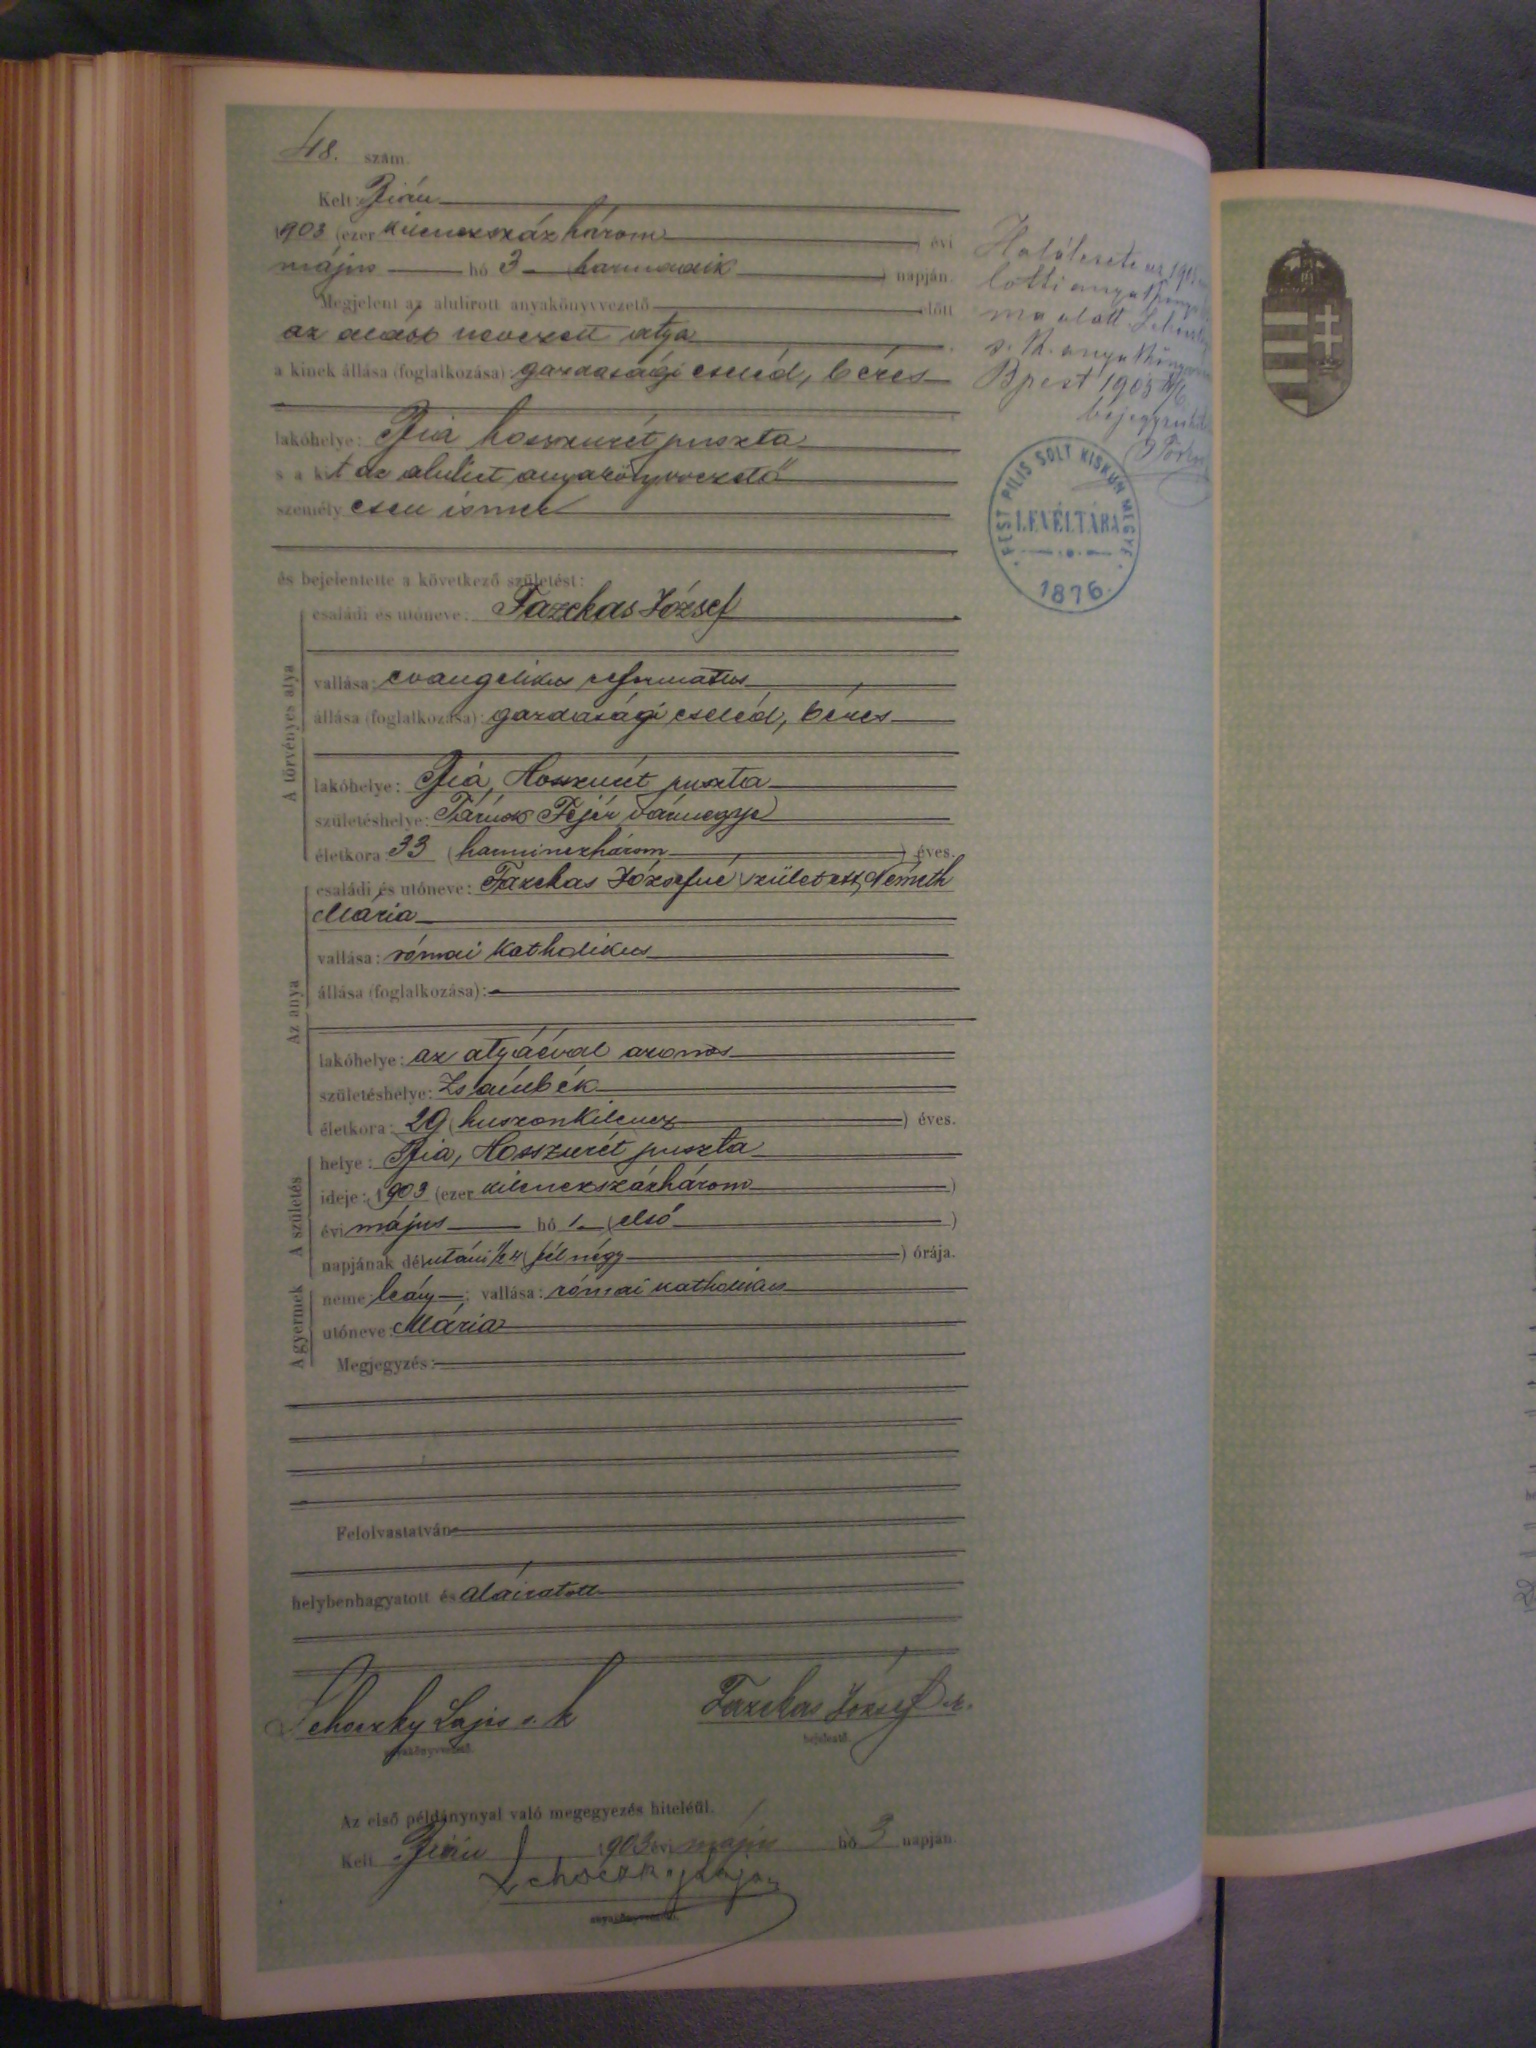 48. szám.
Kelt: Bián
1903 (ezer kilenczszáz három) évi
május hó 3 (harmadik) napján.
Megjelent az alulírott anyakönyvvezető előtt
az alább nevezett atya
a kinek állása (foglalkozása): gazdasági cseléd, béres
lakóhelye: Bia hosszurét puszta
s a kit az alulirt anyakönyvvezető
személyesen ismer
és bejelentette a következő születést:
A törvényes atya
családi és utóneve: Fazekas József
vallása: evangelikus reformatus
állása (foglalkozása): gazdasági cseléd, béres
lakóhelye: Bia, Hosszurét puszta
születéshelye: Tárnok Fejér vármegye
életkora 33 (harminczhárom) éves.
Az anya
családi és utóneve: Fazekas Józsefné született Németh
Mária
vallása: római katholikus
állása (foglalkozása):
lakóhelye: az atyáéval azonos
születéshelye: Zsámbék
életkora: 29 (huszonkilencz) éves.
A születés
helye: Bia, Hosszurét puszta
ideje: 1903 (ezer kilenczszázhárom)
évi május hó 1 (első)
napjának délutáni ½4 (fél négy) órája.
A gyermek
neme: leány; vallása: római katholikus
utóneve: Mária
Megjegyzés:
Felolvastatván
helybenhagyatott és aláiratott
Schoczky Lajos s. k
Fazekas József s. k.
anyakönyvvezető.
bejelentő.
Az első példánynyal való megegyezés hiteléül.
Kelt Bián 1903 évi május hó 3 napján.
Schoczky Lajos
anyakönyvvezető.
Halálesete az
alatt
s. k.
Bpest 1903
PEST PILIS SOLT KISKUN MEGYE
LEVÉLTÁRA
1876.